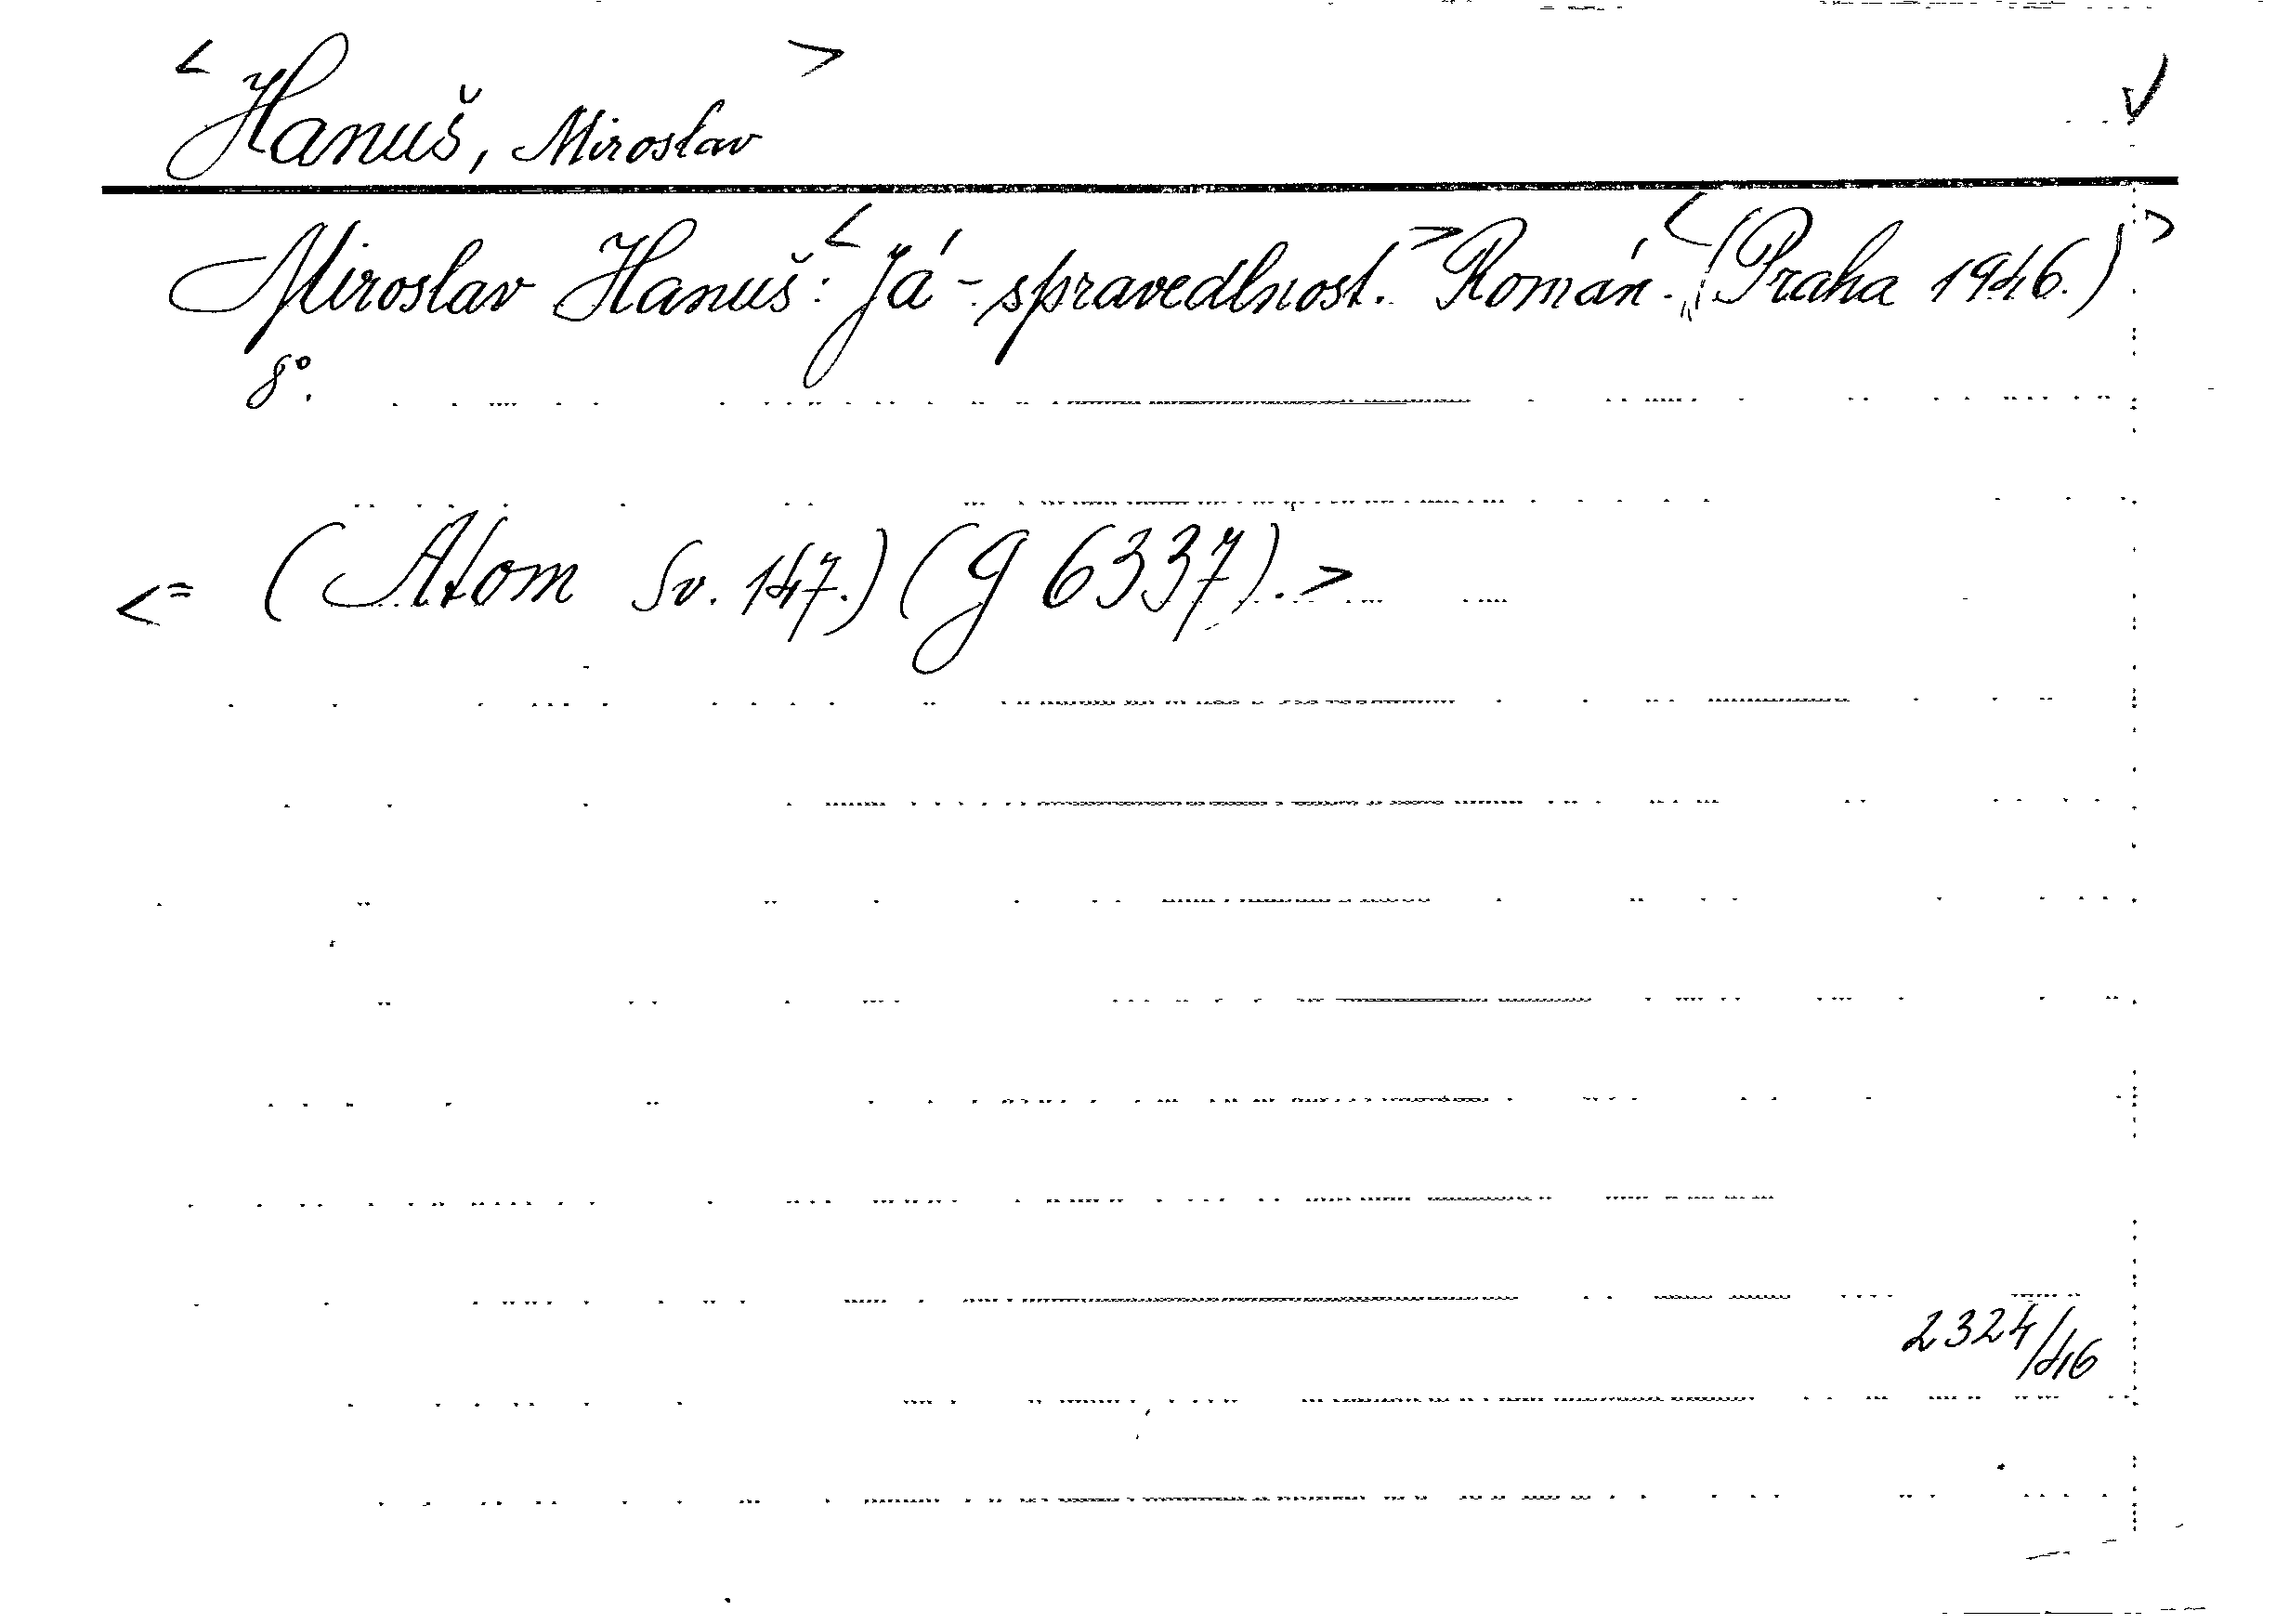 <Hanuš, Miroslav>
Miroslav Hanuš: <Já - spravedlnost.> Román. <(Praha 1946.)>
8°.
<= (Atom Sv. 147.) (g 6337).>
2324/46